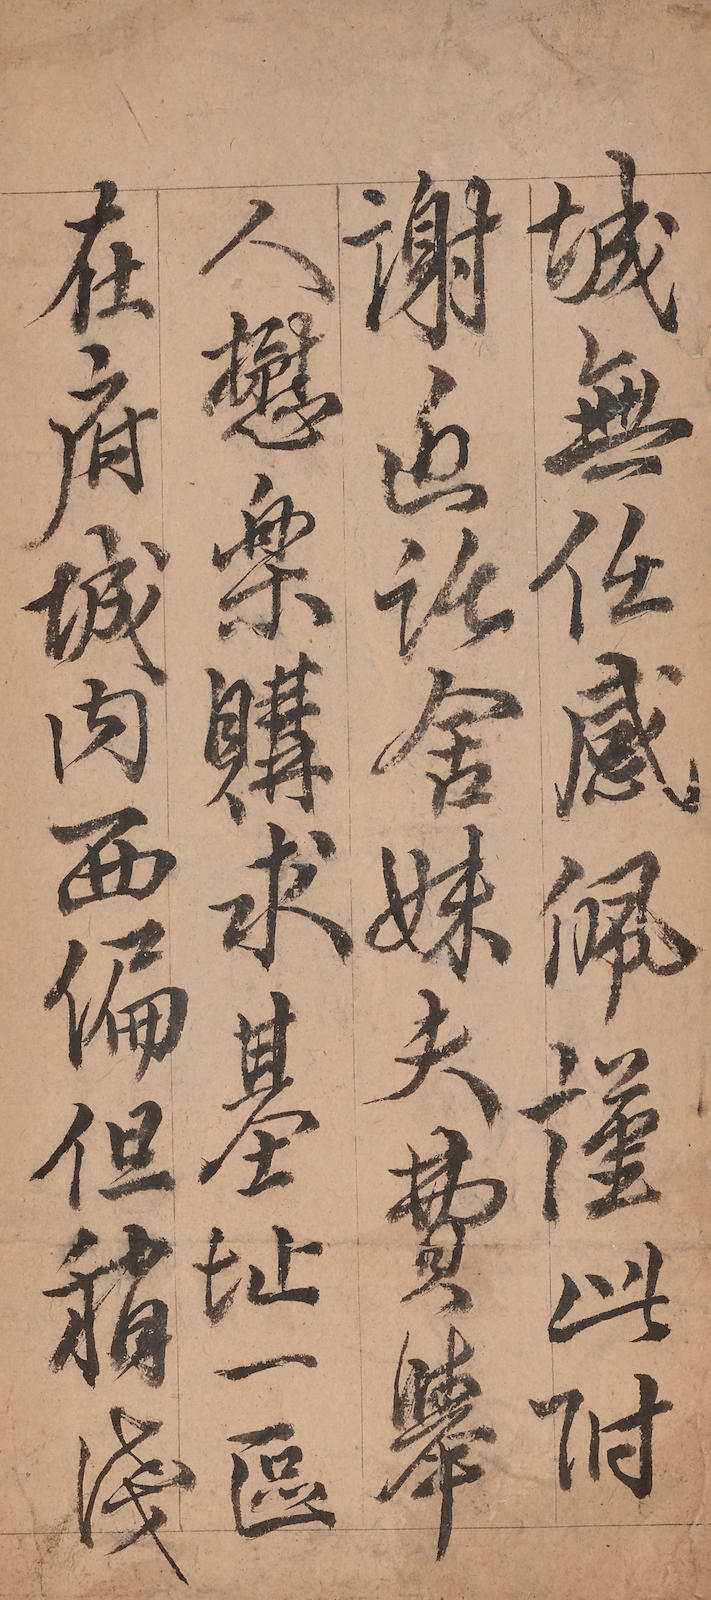 城無任感佩謹此附
謝近託舍妹夫費舉
人懋樂購求基址一區
在府城内西偏但稍淺